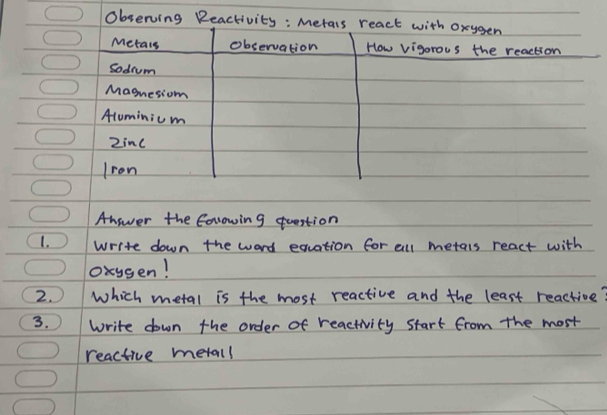 Observing Reactivity : Metals react with oxygen
Metals Observation How vigorous the reaction
Sodium
Magnesium
Aluminium
Zinc
Iron
Answer the following question
1. Write down the word equation for all metals react with
oxygen!
2. Which metal is the most reactive and the least reactive?
3. Write down the order of reactivity start from the most
reactive metal!